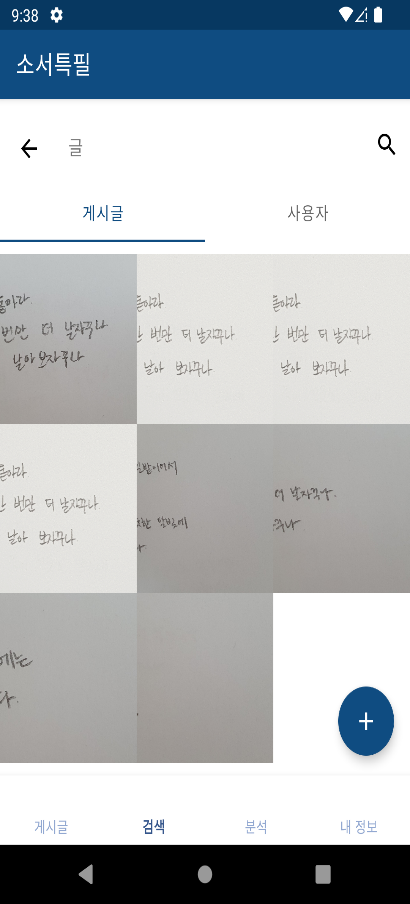 9:38
소서특필
글
게시글 사용자
돋아라.
번만 더 날자꾸나
날아 보자꾸나
돋아라
한 번만 더 날자꾸나
날아 보자꾸나
돋아라
한 번만 더 날자꾸나
날아 보자꾸나
돋아라
한 번만 더 날자꾸나
날아 보자꾸나
더 날자꾸나.
꾸나.
에는
다.
+
게시글 검색 분석 내 정보